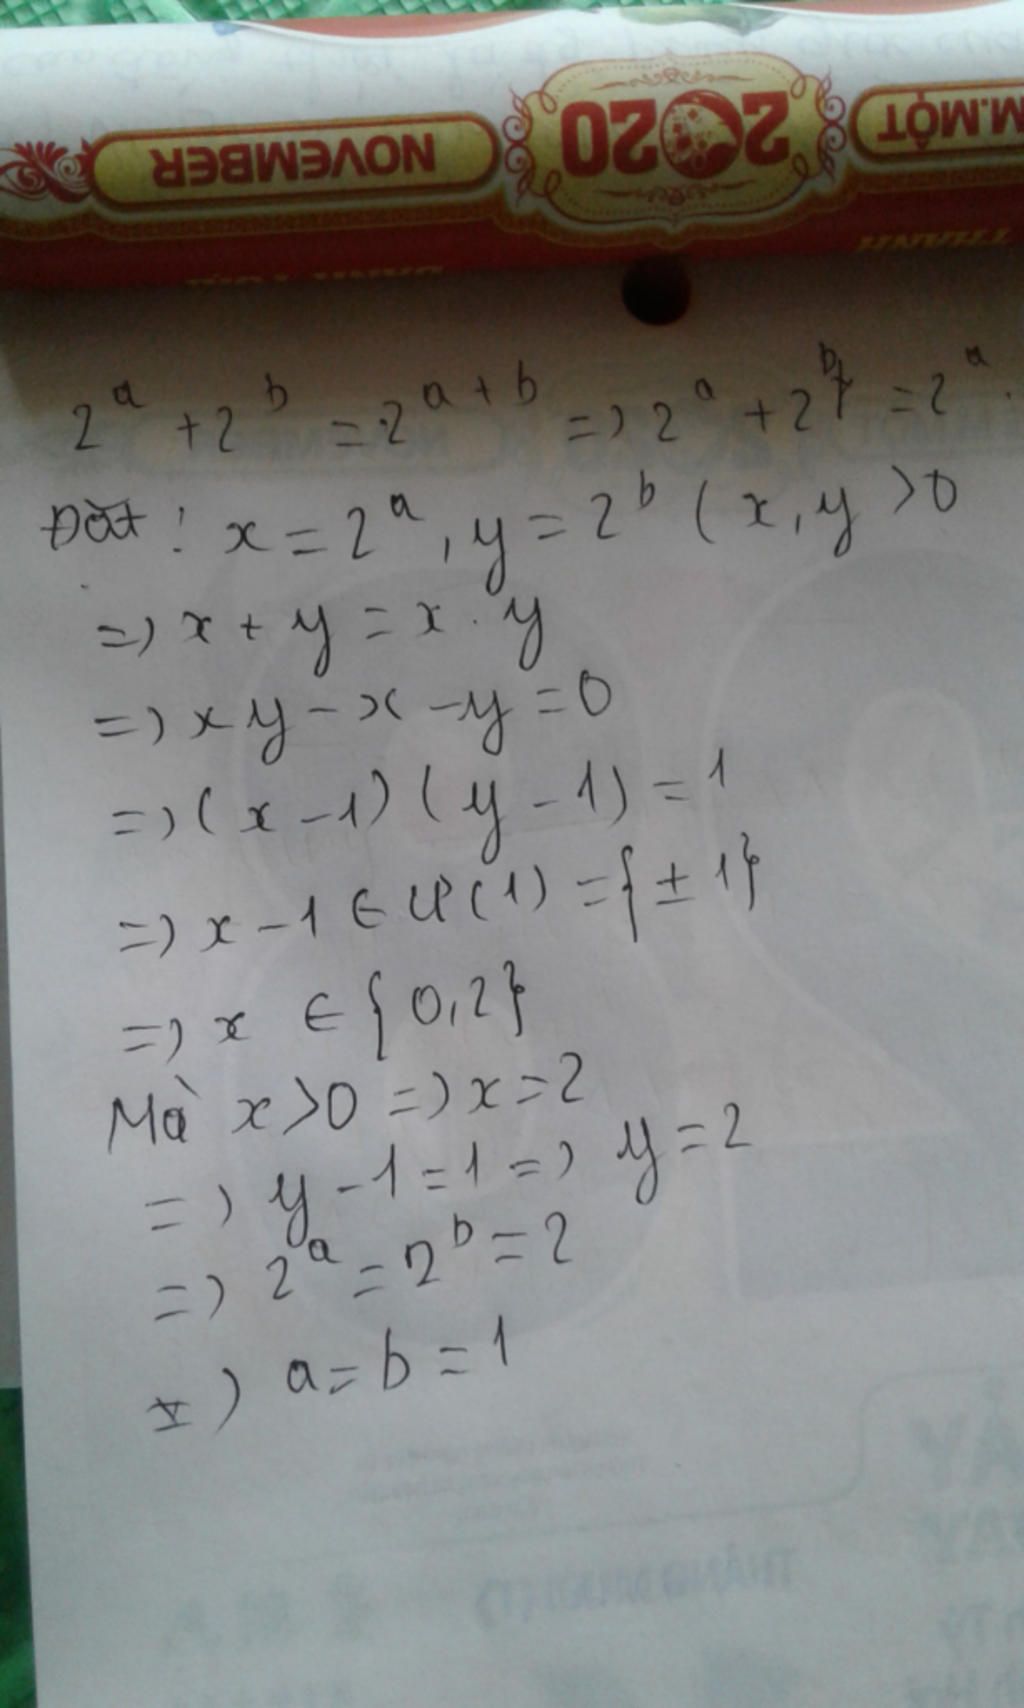 NOVEMBER 2020 M.MỘT
THÀNH
2^a + 2^b = 2^{a+b} => 2^a + 2^b = 2^a.
Đặt: x = 2^a, y = 2^b (x, y > 0
=> x + y = x . y
=> xy - x - y = 0
=> (x - 1) (y - 1) = 1
=> x - 1 ∈ Ư(1) = {± 1}
=> x ∈ {0, 2}
Mà x > 0 => x = 2
=> y - 1 = 1 => y = 2
=> 2^a = 2^b = 2
=> a = b = 1